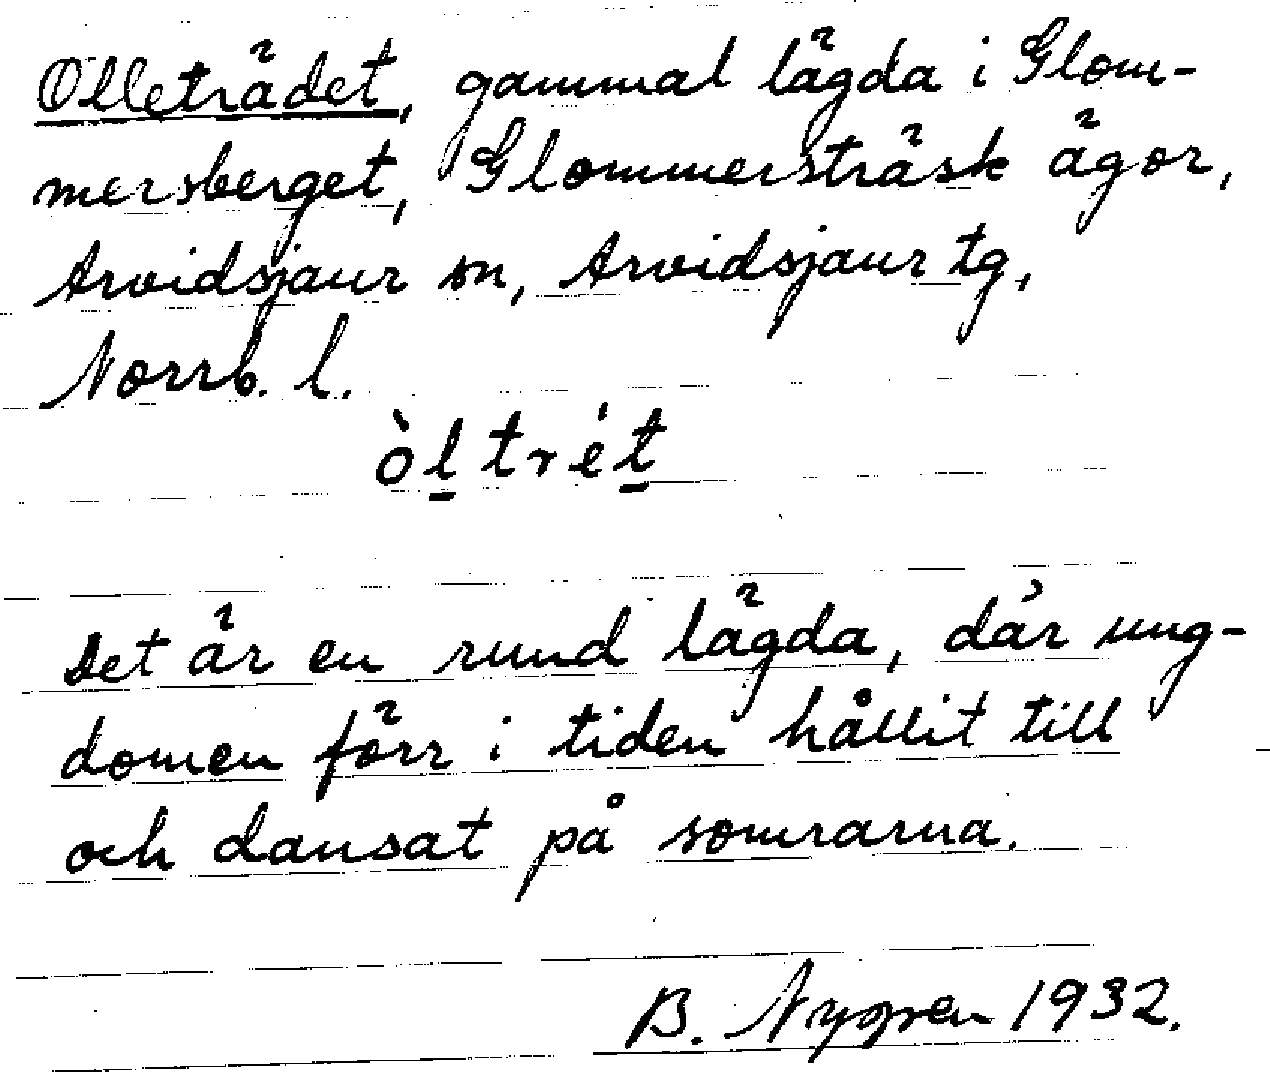 Olleträdet, gammal lägda i Glom-
mersberget, Glommersträsk ägor,
Arvidsjaur sn, Arvidsjaur tg,
Norrb. l.
òl̲ trét̲
Det är en rund lägda, där ung-
domen förr i tiden hållit till
och dansat på somrarna.
B. Nygren 1932.